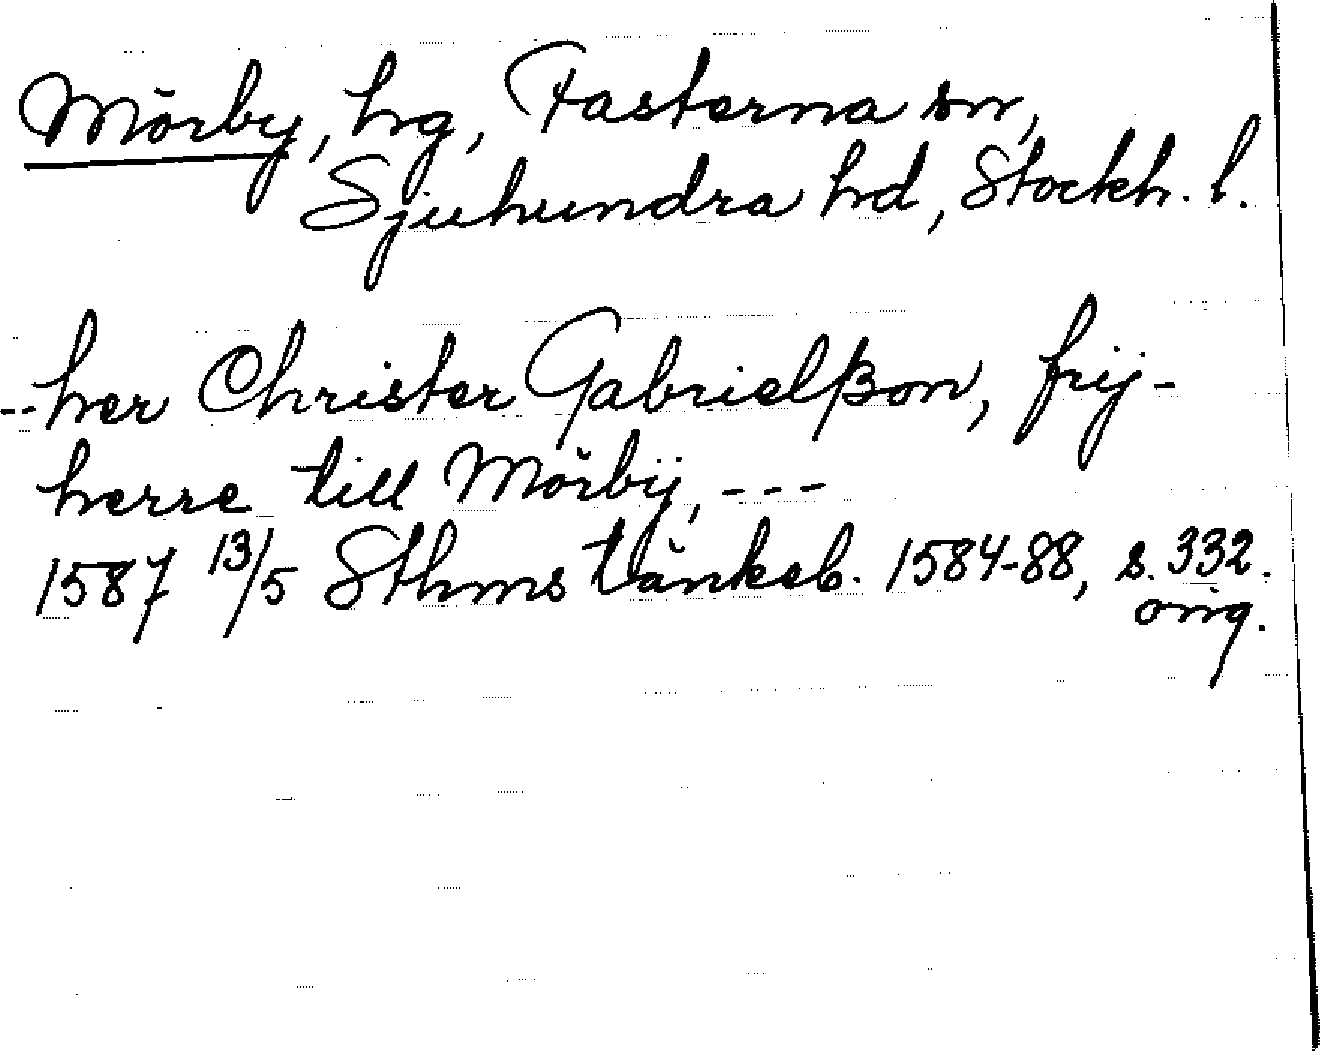 Mörby, hg, Fasterna sn,
Sjuhundra hd, Stockh. l.
--her Christer Gabrielßon, frij-
herre till Mörbÿ, ---
1587 13/5 Sthms tänkeb. 1584-88, s. 332.
orig.